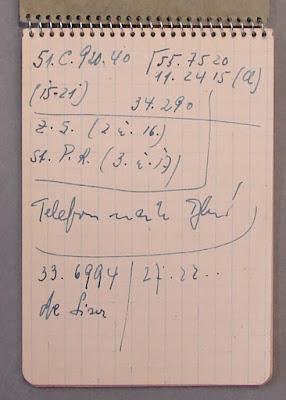 51. C. 920. 40
55. 75 20
11. 24 15 (a)
(15-21)
34. 290
Z. S. (2 i 16.)
St. P. R. (3. i. 17)
Telefon nach
33. 6994
27. 22 ..
de